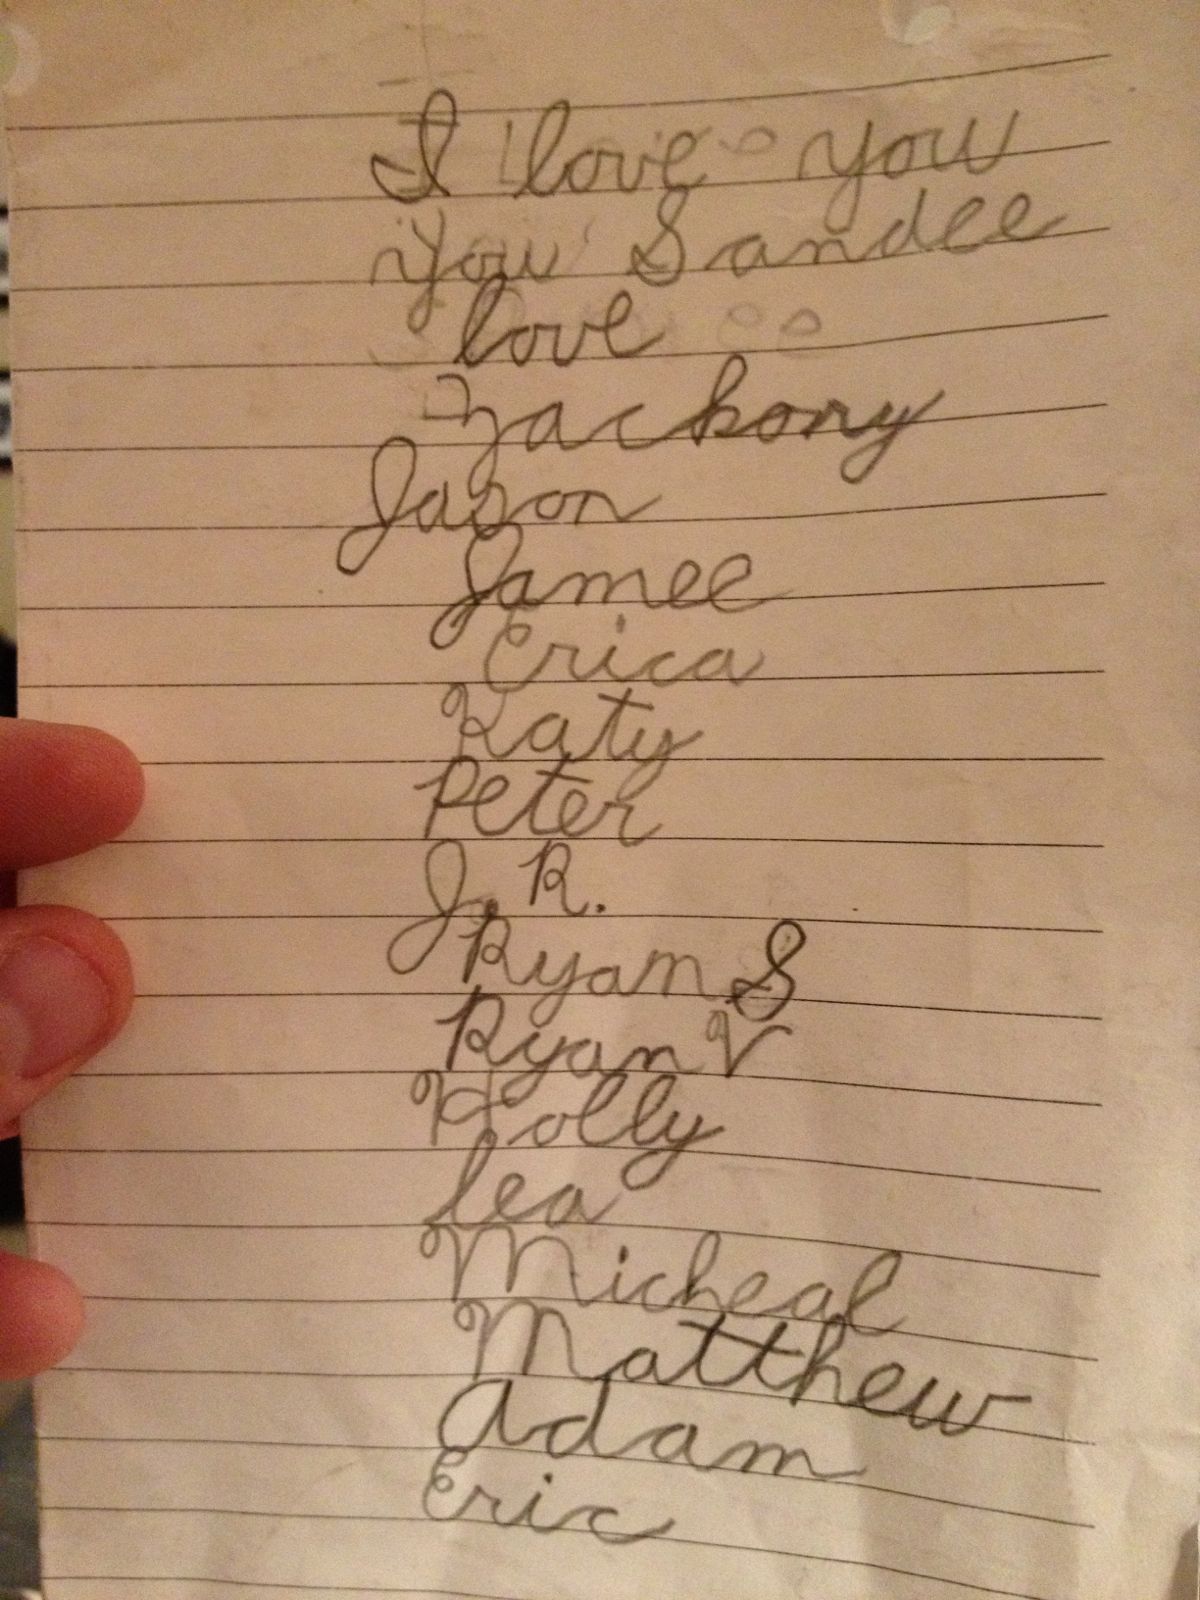 I love you
you Sandee
love
Zackory
Jason
Jamee
Erica
Katy
Peter
J. R.
Ryan S
Ryan V
Holly
Lea
Micheal
Matthew
Adam
Eric